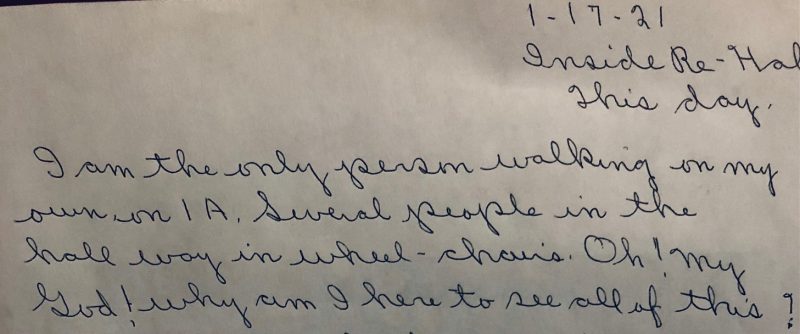 1-17-21
Inside Re-Hab
This day.
I am the only person walking on my
own, on 1A. Several people in the
hall way in wheel-chairs. Oh! my
God! why am I here to see all of this?